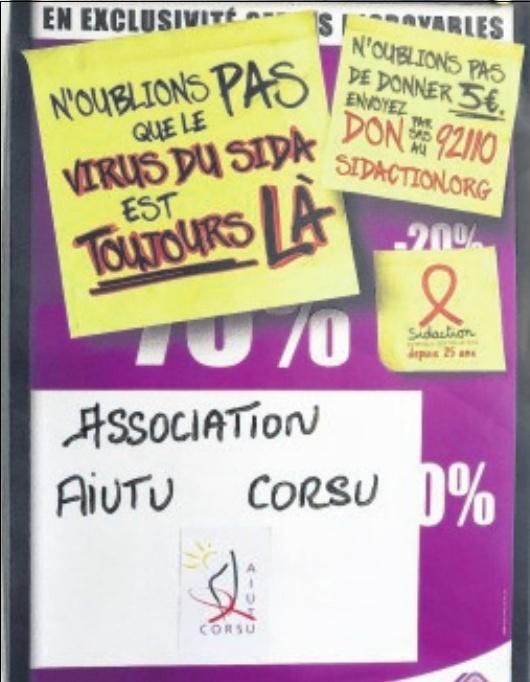 EN EXCLUSIVITÉ
N'OUBLIONS PAS
QUE LE
VIRUS DU SIDA
EST
TOUJOURS LÀ
N'OUBLIONS PAS
DE DONNER 5€.
ENVOYEZ
DON PAR SMS AU 92110
SIDACTION.ORG
-20%
70%
Sidaction
depuis 25 ans
0%
ASSOCIATION
AIUTU CORSU
AIUTU
CORSU